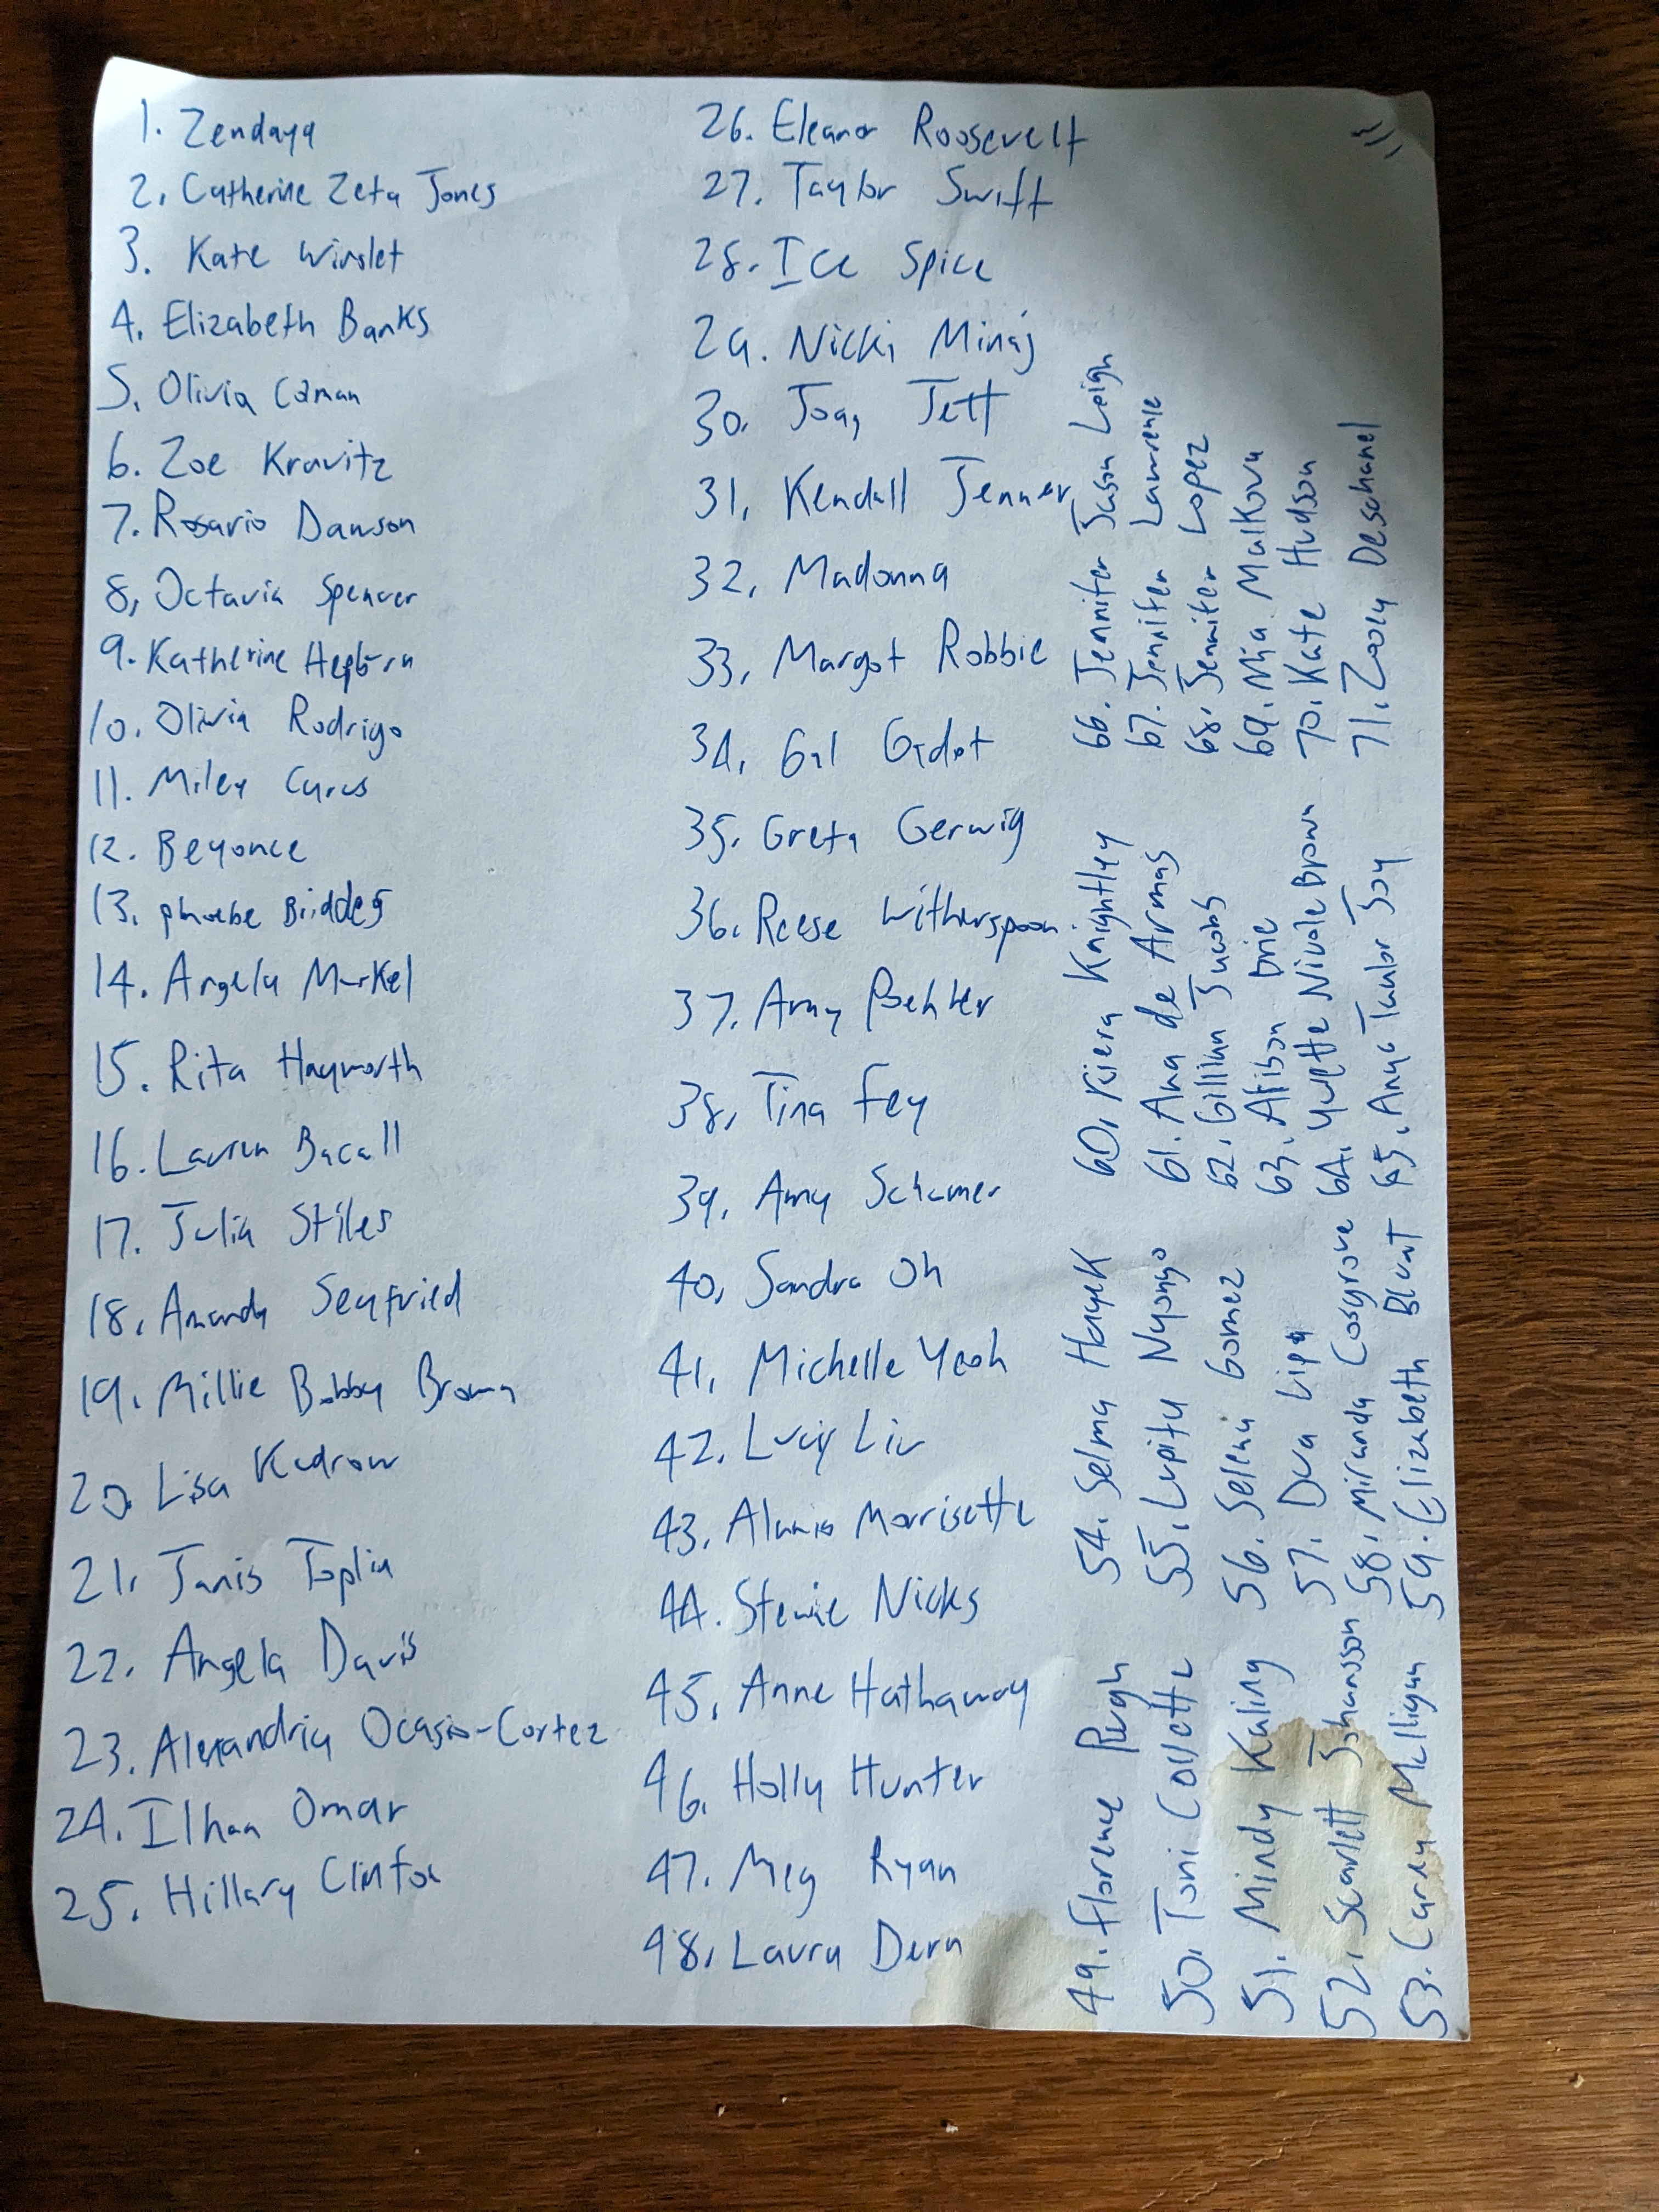 1. Zendaya
2. Catherine Zeta Jones
3. Kate Winslet
4. Elizabeth Banks
5. Olivia Colman
6. Zoe Kravitz
7. Rosario Dawson
8, Octavia Spencer
9. Katherine Hepburn
10. Olivia Rodrigo
11. Miley Cyrus
12. Beyonce
13. phoebe Briddes
14. Angela Merkel
15. Rita Hayworth
16. Lauren Bacall
17. Julia Stiles
18. Amanda Seyfried
19. Millie Bobby Brown
20. Lisa Kudrow
21. Janis Joplin
22. Angela Davis
23. Alexandria Ocasio-Cortez
24. Ilhan Omar
25. Hillary Clinton
26. Eleanor Roosevelt
27. Taylor Swift
28. Ice Spice
29. Nicki Minaj
30. Joan Jett
31, Kendall Jenner
32, Madonna
33, Margot Robbie
34, Gal Gadot
35, Greta Gerwig
36. Reese Witherspoon
37. Amy Poehler
38, Tina Fey
39, Amy Schumer
40, Sandra Oh
41, Michelle Yeoh
42. Lucy Liu
43, Alannis Morrisette
44. Stevie Nicks
45, Anne Hathaway
46. Holly Hunter
47. Meg Ryan
48, Laura Dern
49. Florence Pugh
50, Toni Collette
51. Mindy Kaling
52. Scarlett Johansson
53. Carey Mulligan
54. Selma Hayek
55. Lupita Nyongo
56. Selena Gomez
57. Dua Lipa
58. Miranda Cosgrove
59. Elizabeth Blunt
60, Kiera Knightley
61. Ana de Armas
62. Gillian Jacobs
63. Alison Brie
64. Yvette Nicole Brown
65. Anya Taylor Joy
66. Jennifer Jason Leigh
67. Jennifer Lawrence
68. Jennifer Lopez
69. Mia Malkova
70. Kate Hudson
71. Zooey Deschanel